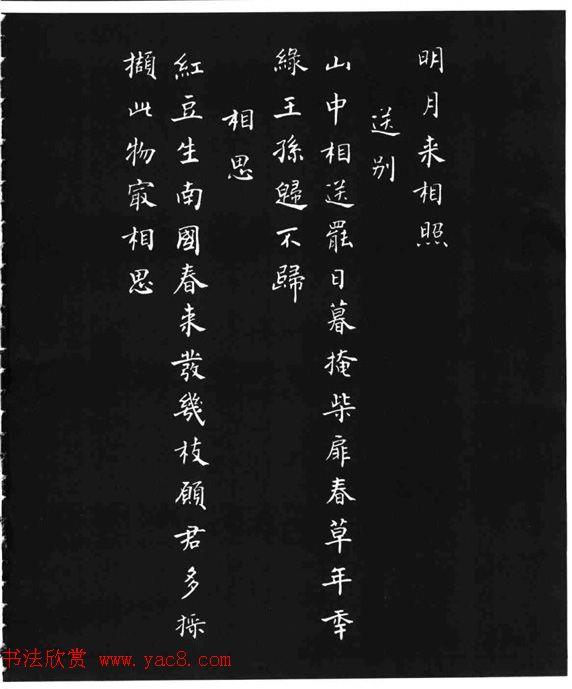 明月来相照
送别
山中相送罷日暮掩柴扉春草年年
綠王孫歸不歸
相思
紅豆生南國春来發幾枝願君多採
擷此物㝡相思
书法欣赏 www.yac8.com